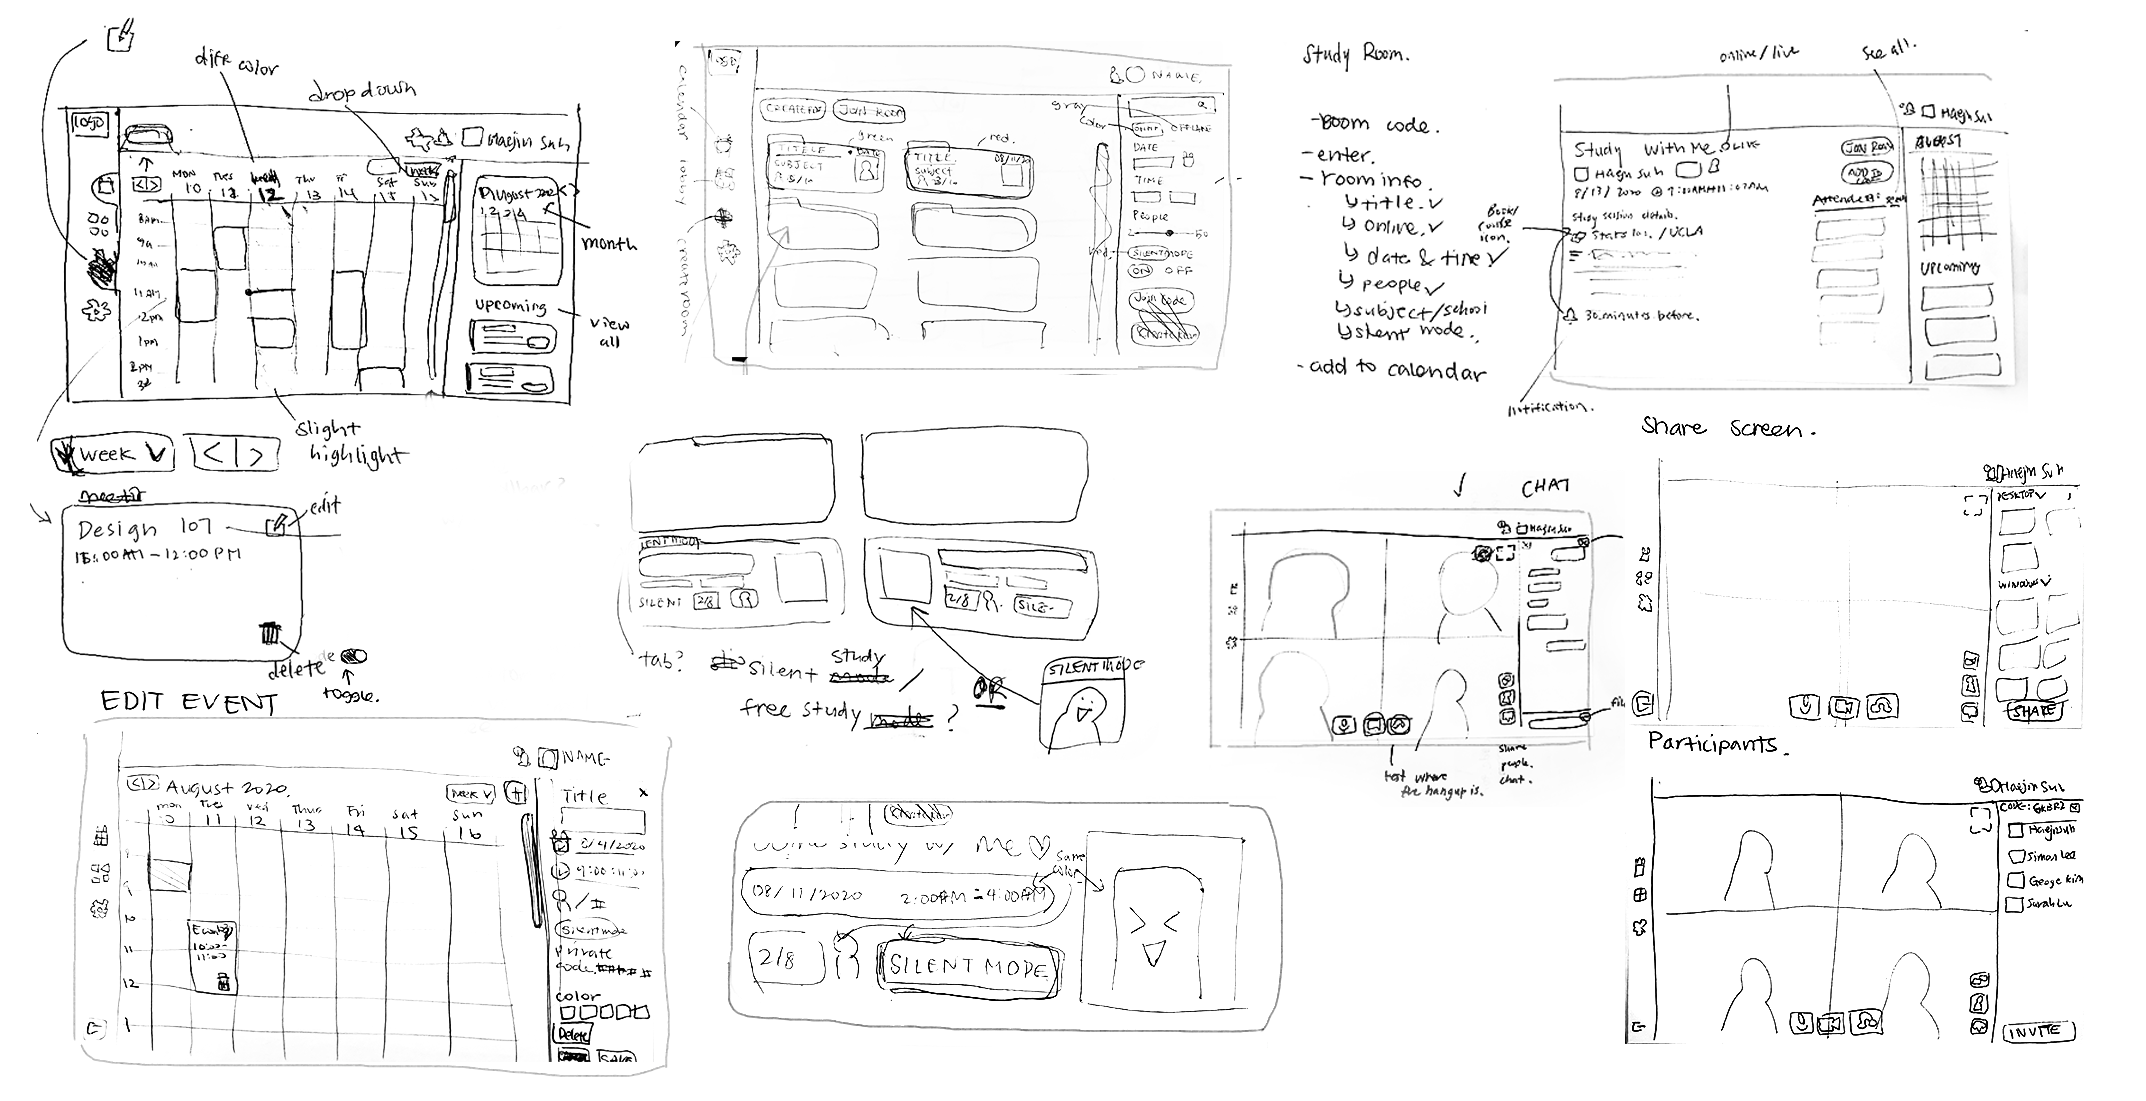 diff color
drop down
LOGO
Haejin Suh
MON TUES Wed Thu Fr Sat Sun
10 12 13 14
week
8am
9a
11AM
12pm
1pm
2pm
August
1 2 3 4
month
upcoming
view
all
slight
highlight
week
< | >
Design 107
edit
:00AM - 12:00 PM
delete
toggle.
LOGO
calendar
create room
NAME
Join Room
gray
color
OFFLINE
green
red.
TITLE
SUBJECT
TITLE
subject
08/11/20
DATE
TIME
People
2
50
SILENT MODE
ON OFF
Join Code
Study Room.
- Room code.
- enter.
- room info.
title.
online.
date & time
people
subject/school
silent mode.
- add to calendar
online/live
see all.
Haejin Suh
Study With Me LIVE
Haejin Suh
Join Room
Study session details.
Book/
icon.
Stats 101. / UCLA
30 minutes before.
notification.
AUGUST
Upcoming
SILENT MODE
SILENT 2/8
2/8
tab?
silent study mode /
free study mode ?
OR
SILENT MODE
CHAT
Haejin Suh
test where
the hangup is.
share
people.
chat.
Share screen.
Haejin Suh
DESKTOP
WINDOW
SHARE
EDIT EVENT
NAME
< | > August 2020.
week
+
mon Tues Wed Thur Fri Sat Sun
10 11 12 13 14 15 16
Title
x
8/4/2020
Silent mode
private
code
color
Delete
SAVE
10
11
12
1
10:00-
11:00
study w/ me
same
color
08/11/2020 2:00AM - 4:00AM
2/8
SILENT MODE
Participants.
Haejin Suh
Haejin Suh
Simon Lee
George Kim
Sarah Lu
INVITE